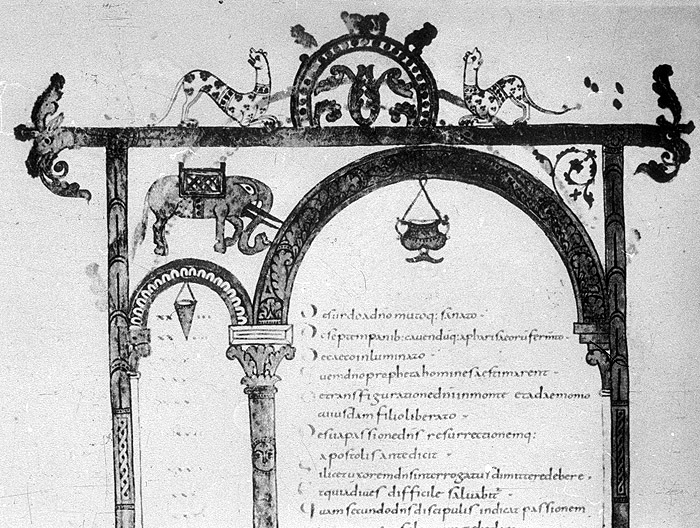 De surdo adno mutoq: sanato·
De septem panib: cauenduq: apharisaeorū fermto·
De caeco inluminato·
Quem dno propheta homines aestimarent
De transfiguratione dni in monte et a daemonio
cuiusdam filio liberato·
De sua passione dns resurrectionemq:
apostolis ante dicit·
Si licet uxorem dns interrogatus dimittere debere
Et quia diues difficile saluabit
Quam secundo dns discipulis indicat passionem